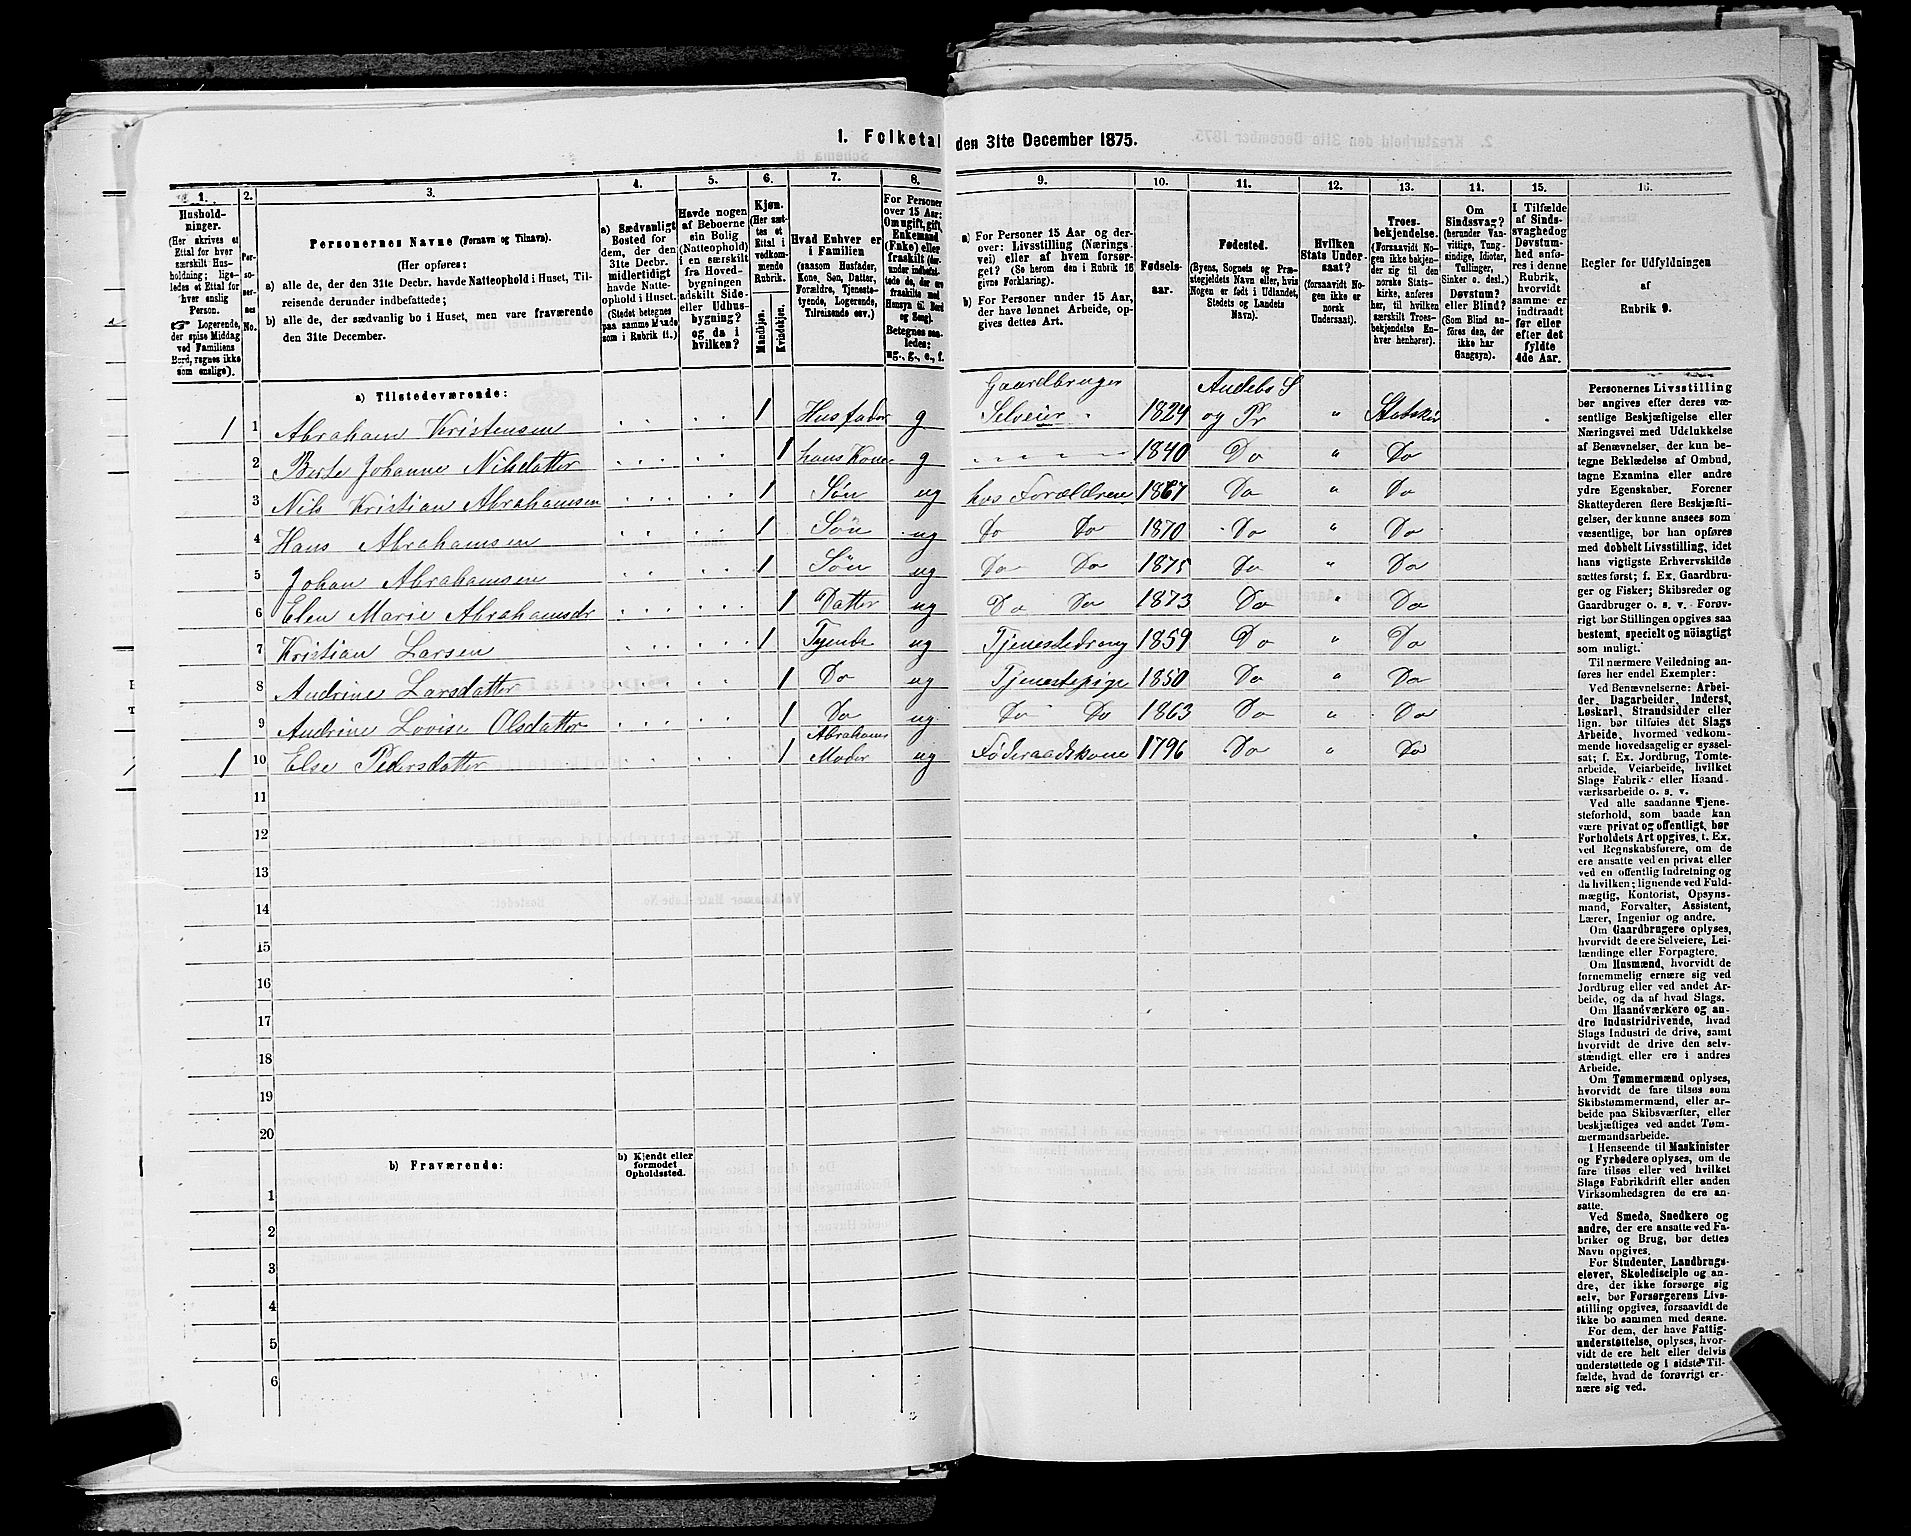 1. Folketal den 31te December 1875.
1. 2. 3. 4. 5. 6. 7. 8. 9. 10. 11. 12. 13. 14. 15. 16.
Personernes Navne (Fornavn og Tilnavn).
(Her opføres:
a) alle de, der den 31te Decbr. havde Natteophold i Huset, Til-
reisende derunder indbefattede;
b) alle de, der sædvanlig bo i Huset, men vare fraværende
den 31te December.
Hushold-
ninger.
(Her skrives et
Ettal for hver
særskilt Hus-
holdning; lige-
ledes et Ettal for
hver enslig
Person.
Logerende,
der spise Middag
ved Familiens
Bord, regnes ikke
som enslige).
a) Sædvanligt
Bosted for
dem, der den
31te Decbr.
midlertidigt
havde Natte-
ophold i Huset.
(Stedet betegnes
paa samme Maade
som i Rubrik 11.)
Havde nogen
af Beboerne
ein Bolig
(Natteophold)
i en særskilt
fra Hoved-
bygningen
adskilt Side-
eller Udhus-
bygning?
og da i
hvilken?
Kjøn.
(Her sæt-
tes et
Ettal i
vedkom-
mende
Rubrik.
Mandkjøn.
Kvindekjøn.
Hvad Enhver er
i Familien
(saasom Husfader,
Kone, Søn, Datter,
Forældre, Tjeneste-
tyende, Logerende,
Tilreisende osv.)
For Personer
over 15 Aar:
Om ugift, gift,
Enkemand
(Enke) eller
fraskilt
Betegnes saa-
ledes:
ug., g., e., f.
a) For Personer 15 Aar og der-
over: Livsstilling (Nærings-
vei) eller af hvem forsør-
get? (Se herom den i Rubrik 16
givne Forklaring).
b) For Personer under 15 Aar,
der have lønnet Arbeide, op-
gives dettes Art.
Fødsels-
aar.
Fødested.
(Byens, Sognets og Præ-
stegjeldets Navn eller, hvis
Nogen er født i Udlandet,
Stedets og Landets
Navn).
Hvilken
Stats Under-
saat?
(forsaavidt No-
gen ikke er
norsk
Undersaat).
Troes-
bekjendelse.
(Forsaavidt No-
gen ikke bekjen-
der sig til den
norske Stats-
kirke, anføres
her, til hvilken
særskilt Troes-
bekjendelse En-
hver henhører).
Om
Sindssvag?
(herunder Van-
vittige, Tung-
sindige, Idioter,
Tullinger,
Sinker o. desl.)
Døvstum?
eller Blind?
(Som Blind an-
føres den, der
ikke har
Gangsyn).
I Tilfælde
af Sinds-
svaghed og
Døvstum-
hed anfø-
res i denne
Rubrik,
hvorvidt
samme er
indtraadt
før eller
efter det
fyldte
4de Aar.
Regler for Udfyldningen
af
Rubrik 9.
a) Tilstedeværende:
1 1 Abraham Kristensen 1 Husfader g Gaardbruger Selveier 1824 Andebo S og Pr " Statskir
2 Berte Johanne Nilsdatter 1 hans Kone g 1840 Do " Do
3 Nils Kristian Abrahamsen 1 Søn ug hos Forældrene 1867 Do " Do
4 Hans Abrahamsen 1 Søn ug Do Do 1870 Do " Do
5 Johan Abrahamsen 1 Søn ug Do Do 1875 Do " Do
6 Elen Marie Abrahamsdr 1 Datter ug Do Do 1873 Do " Do
7 Kristian Larsen 1 Tyende ug Tjenestedreng 1859 Do " Do
8 Andrine Larsdatter 1 Do ug Tjenestepige 1850 Do " Do
9 Andrine Lovise Olsdatter 1 Do ug Do Do 1863 Do " Do
1 10 Else Pedersdatter 1 Abrahams Moder ug Føderaadskone 1796 Do " Do
11
12
13
14
15
16
17
18
19
20
b) Fraværende:
b) Kjendt eller
formodet
Opholdssted.
1
2
3
4
5
6
Personernes Livsstilling
bør angives efter deres væ-
sentlige Beskjæftigelse eller
Næringsvei med Udelukkelse
af Benævnelser, der kun be-
tegne Beklædelse af Ombud,
tagne Examina eller andre
ydre Egenskaber. Forener
Skatteyderen flere Beskjæfti-
gelser, der kunne ansees som
væsentlige, bør han opføres
med dobbelt Livsstilling, idet
hans vigtigste Erhvervskilde
sættes først; f. Ex. Gaardbru-
ger og Fisker; Skibsreder og
Gaardbruger o. s. v. Forøv-
rigt bør Stillingen opgives saa
bestemt, specielt og nöiagtigt
som muligt.
Til nærmere Veiledning an-
føres her endel Exempler:
Ved Benævnelserne: Arbei-
der, Dagarbeider, Inderst,
Løskarl, Strandsidder eller
lign. bør tilføies det Slags
Arbeide, hvormed vedkom-
mende hovedsagelig er syssel-
sat; f. Ex. Jordbrug, Tomte-
arbeide, Veiarbeide, hvilket
Slags Fabrik- eller Haand-
værksarbeide o. s. v.
Ved alle saadanne Tjene-
steforhold, som baade kan
være privat og offentligt, bør
Forholdets Art opgives, t. Ex.
ved Regnskabsførere, om de
ere ansatte ved en privat eller
ved en offentlig Indretning og
da hvilken; lignende ved Fuld-
mægtig, Kontorist, Opsyns-
mand, Forvalter, Assistent,
Lærer, Ingeniør og andre.
Om Gaardbrugere oplyses,
hvorvidt de ere Selveiere, Lei-
lændinge eller Forpagtere.
Om Husmænd, hvorvidt de
fornemmelig ernære sig ved
Jordbrug eller ved andet Ar-
beide, og da af hvad Slags.
Om Haandværkere og an-
dre Industridrivende, hvad
Slags Industri de drive, samt
hvorvidt de drive den selv-
stændigt eller ere i andres
Arbeide.
Om Tømmermænd oplyses,
hvorvidt de fare tilsøs som
Skibstømmermænd, eller ar-
beide paa Skibsværfter, eller
beskjæftiges ved andet Tøm-
mermandsarbeide.
I Henseende til Maskinister
og Fyrbødere oplyses, om de
fare tilsøs eller ved hvilket
Slags Fabrikdrift eller anden
Virksomhedsgren de ere an-
satte.
Ved Smede, Snedkere og
andre, der ere ansatte ved Fa-
briker og Brug, bør dettes
Navn opgives.
For Studenter, Landbrugs-
elever, Skoledisciple og an-
dre, der ikke forsørge sig
selv, bør Forsørgerens Livs-
stilling opgives, forsaavidt de
ikke bo sammen med denne.
For dem, der have Fattig-
understøttelse, oplyses, hvor-
vidt de ere helt eller delvis
understøttede og i sidste Til-
fælde, hvad de forøvrigt er-
nære sig ved.